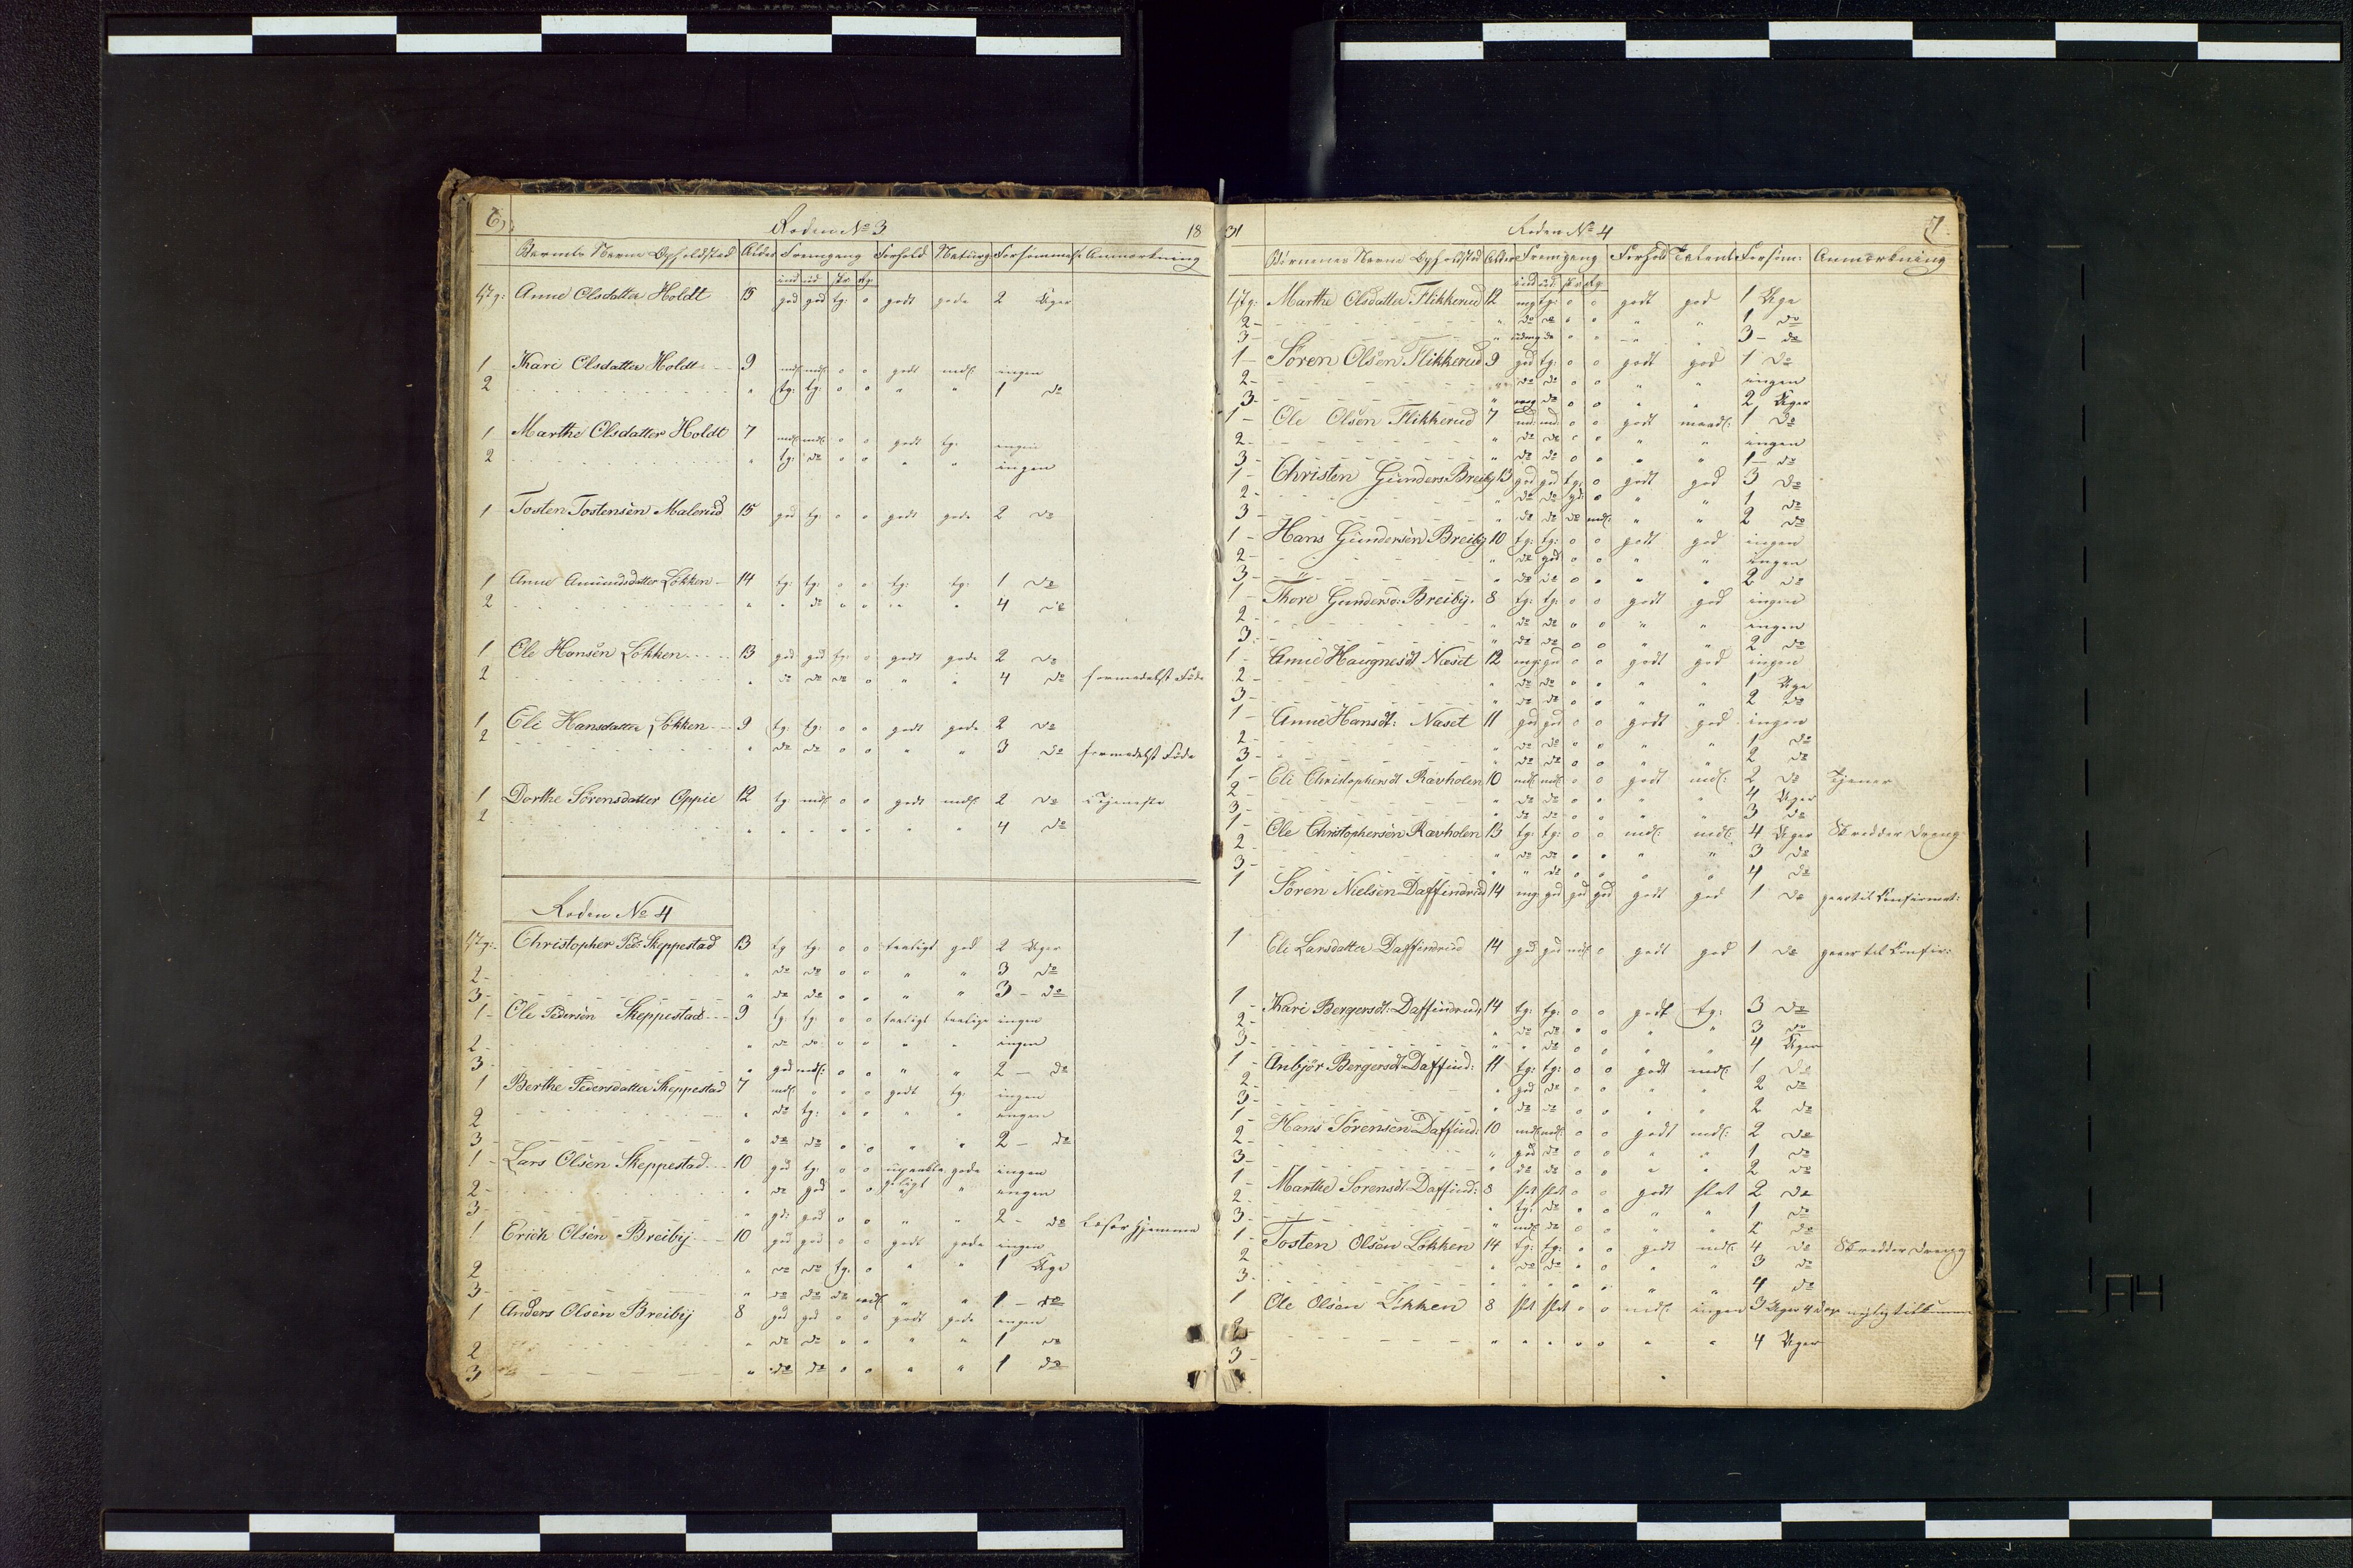 6, Roden No 3 18
Barnets Navn Opholdsted Alder Fremgang Forhold Naturg: Forsømmelse Anmærkning
ind ud Skr: Rg:
1st g: Anne Olsdatter Holdt 15 god god tg: o godt gode 2 Uger
1 Kari Olsdatter Holdt 9 mdl mdl o o godt mdl ingen
2 " tg: tg: o o " " 1 do
1 Marthe Olsdatter Holdt 7 mdl mdl o o godt tg: ingen
2 " tg: do o o " " ingen
1 Tosten Tostensen Malerud 15 god tg: o o godt gode 2 do
1 Anne Amundsdatter Løkken 14 tg: tg: o o tg: tg: 1 do
2 " " do " o " " 4 do
1 Ole Hansen Løkken 13 god god tg: o godt gode 2 do
2 " do do do o " " 4 do formedelst Føde
1 Eli Hansdatter Løkken 9 tg: tg: o o godt gode 2 do
2 " do do o o " " 3 do formedelst Føde
1 Dorthe Sørensdatter Oppie 12 tg: mdl o o godt mdl 2 do i Tjeneste
2 " " " o o " " 4 do
Roden No 4
1st g: Christopher Ped: Skeppestad 13 tg tg: o o taaligt god 2 Uger
2 - " do do o o " " 3 do
3 - " do do o o " " 3 - do
1 - Ole Pedersen Skeppestad 9 tg: tg: o o taaligt taalige ingen
2 - " do do o o " " ingen
3 - " god mdl: o o " " 2 - do
1 Berthe Pedersdatter Skeppestad 7 mdl o o o godt tg: ingen
2 " do tg: o o " " ingen
3 - " do do o o " " 2 - do
1 - Lars Olsen Skeppestad 10 god tg: o o gode ingen
2 - " do god o o " " ingen
3 - " gd: god o o " " 2 - do Læser hjemme
1 Erich Olsen Breiby 10 god god o o godt gode ingen
2 " do do tg: o " " 1 Uge
3 - " do do do mdl " " 1 - do
1 Anders Olsen Breiby 8 god god o o godt gode ingen
2 " do do o o " " 1 do
3 " do do o o " " 1 do
31 Roden No 4 7.
Børnenes Navne Opholdsted Alder Fremgang Forhold Talent Forsøm: Anmærkning
ind ud: Skr: Rg:
1st g: Marthe Olsdatter Flikkerud 12 mg tg: o o godt god 1 Uge
2 - " do do o o " " 1 do
3 - " udmg do o o " " 3 - do
1 - Søren Olsen Flikkerud 9 god tg: o o godt god 1 do
2 - " do do o o " " ingen
3 - " mg do o o " " 2 Uger
1 - Ole Olsen Flikkerud 7 md: md o o godt maadl: 1 do
2 - " do do o o " " ingen
3 - " do do o o " " 1 - do
1 - Christen Gunders: Breiby 13 god god tg: o godt god 3 do
2 - " do do gd: o " " 1 do
3 - " do do do mdl: " " 2 do
1 - Hans Gundersen Breiby 10 tg: tg: o o godt god ingen
2 - " do god o o " " ingen
3 - " do do o o " " 2 do
1 - Thore Gundersd: Breiby 8 tg: tg: o o godt god ingen
2 - " do do o o " " ingen
3 - " do do o o " " 2 do
1 - Anne Haugnesdt Næset 12 mg: gd o o godt god ingen
2 - " do do o o " " 1 Uge
3 - " do do o o " " 2 do
1 - Anne Hansdt: Næset 11 god god o o godt god ingen
2 - " do do o o " " 1 do
3 - " do do o o " " 2 do
1 - Eli Christophersdt Ravholen 10 mdl mdl o o godt mdl: 2 do Tjener
2 - " do do o o " " 4 Uger
3 - " do do o o " " 3 do
1 - Ole Christophersen Ravholen 13 tg: tg: o o mdl: mdl: 4 Uger Skredder Dreng
2 - " do do o o " " 3 do
3 - " " do o o " " 4 do
1 Søren Nielsen Daffindrud 14 mg gd god god godt god 1 do gaaer til Confirmat:
1 Eli Larsdatter Daffindrud 14 gd gd mdl o godt god 1 do gaaer til Confir:
1 Kari Bergersdt: Daffindrud 14 tg: tg: o o godt tg: 3 do
2 - " do do o o " " 3 do
3 - " " do o o " " 4 Uger
1 - Anbjør Bergersdt Daffind: 11 tg: tg: o o godt mdl: 1 do
2 - " god do o o " " 2 do
3 - " do do o o " " 2 do
1 - Hans Sørensen Daffind: 10 mdl mdl: o o godt mdl: 2 do
2 - " god do o o " " 1 do
3 - " do do o o " " 2 do
1 - Marthe Sørensdt Daffind: 8 slet slet o o godt slet 2 do
2 - " tg: do o o " " 1 do
3 - " mdl do o o " " 2 do
1 - Tosten Olsen Løkken 14 tg: tg: o o godt mdl: 4 do Skredder Dreng
2 " do do o o " " 3 do
3 - " " " o o " " 4 do
1 Ole Olsen Løkken 8 slet slet o o mdl: ingen 3 Uger 4 dage nylig tilkommen
2 - " " " o o " " 4 Uger
3 -